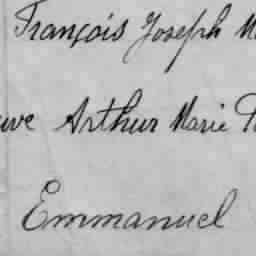 François Joseph
Arthur Marie
Emmanuel